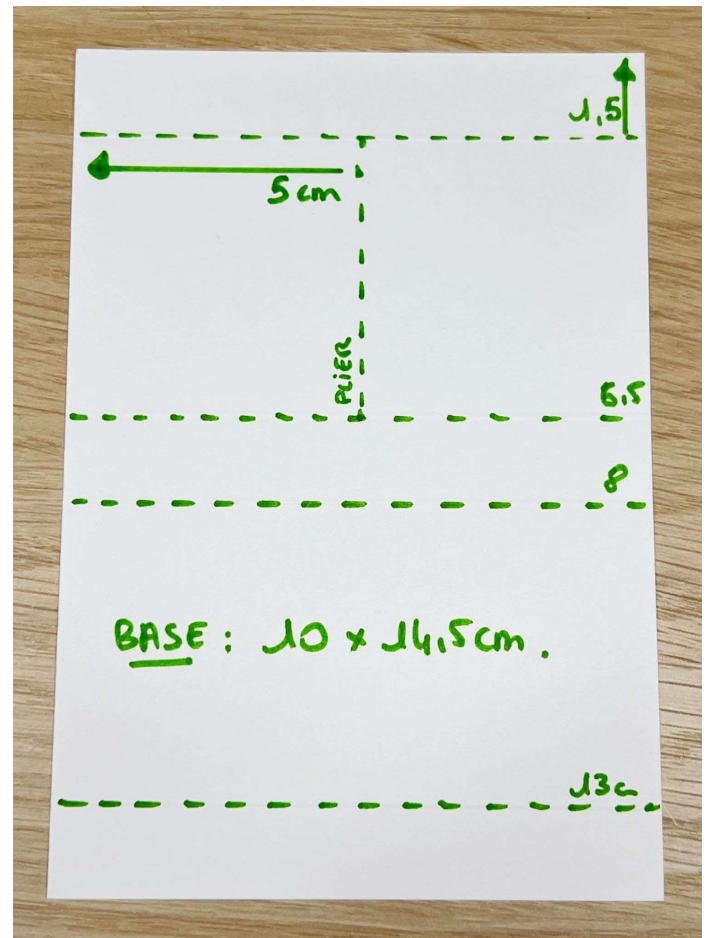 1,5
5 cm
PLIER
6,5
8
BASE : 10 x 14,5cm.
13c